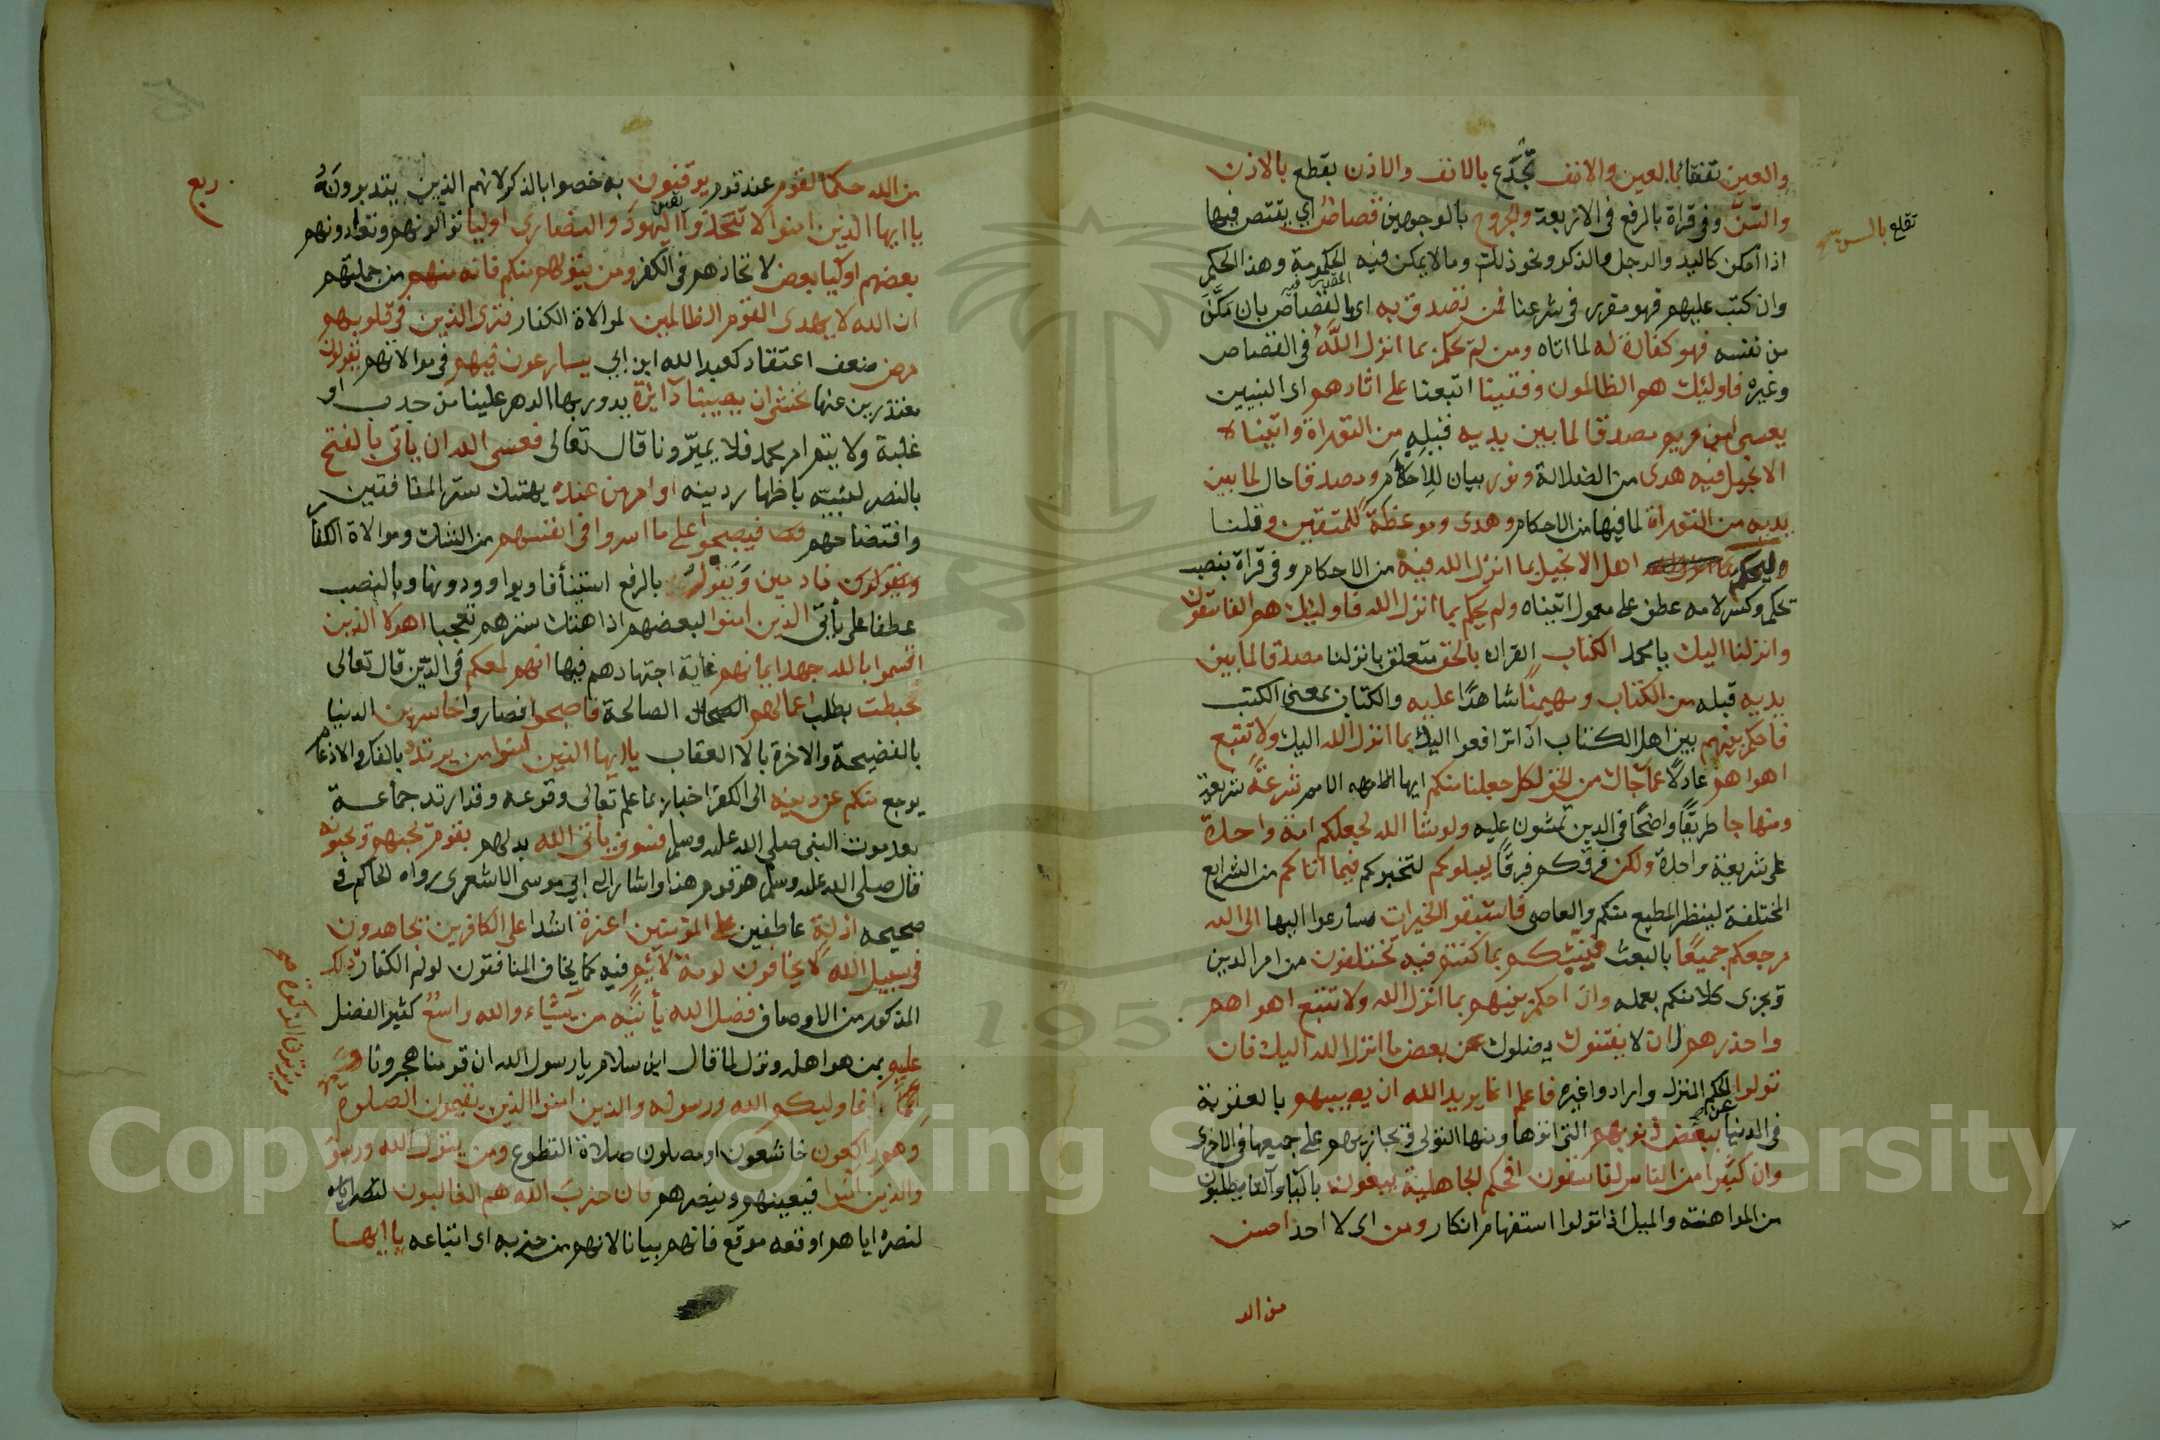 والعين تفقأ بالعين والانف تجدع بالانف والاذن يقطع بالاذن
والسن وفى قراة بالرفع فى الاربعة والجروح بالوجهين قصاص اي يقتص فيها
تقلع بالسن صح
اذا امكن كاليد والرجل والذكر ونحو ذلك وما لايمكن فيه الحكومة وهذا الحكم
وان كتب عليهم فهو مقرر فى شرعنا فمن تصدق به اى بالقصاص بان مكن
من نفسه فهو كفارة له لما اتاه ومن لم يحكم بما انزل الله فى القصاص
وغيره فاوليك هم الظالمون وقفينا اتبعنا على اثارهم اى النبيين
بعيسى ابن مريم مصدقا لما بين يديه قبله من التوراة واتيناه
الانجيل فيه هدى من الضلالة ونور بيان للاحكام ومصدقا حال لما بين
يديه من التوراة لما فيها من الاحكام وهدى وموعظة للمتقين وقلنا
وليحكم اهل الانجيل بما انزل الله فيه من الاحكام وفى قراة بنصب
يحكم وكسر لامه عطف على معمول اتيناه ولم يحكم بما انزل الله فاوليك هم الفاسقون
وانزلنا اليك يا محمد الكتاب القران بالحق متعلق بانزلنا مصدقا لما بين
يديه قبله من الكتاب ومهيمنا شاهدا عليه والكتاب بمعنى الكتب
فاحكم بينهم بين اهل الكتاب اذا ترافعوا اليك بما انزل الله اليك ولا تتبع
اهواهم عادلا عما جاك من الحق لكل جعلنا منكم ايها الامم شرعة شريعة
ومنهاجا طريقا واضحا فى الدين تمشون عليه ولو شا الله لجعلكم امة واحدة
على شريعة واحدة ولكن فرقكم فرقا ليبلوكم لتخبركم فيما اتاكم من الشرايع
المختلفة لينظر المطيع منكم والعاصى فاستبقوا الخيرات سارعوا اليها الى الله
مرجعكم جميعا بالبعث فينبئكم بما كنتم فيه تختلفون من امر الدين
ويجزى كلا منكم بعمله وان احكم بينهم بما انزل الله ولا تتبع اهواهم
واحذرهم لان لا يفتنوك يضلوك عن بعض ما انزل الله اليك فان
تولوا عن الحكم المنزل وارادوا غيره فاعلم انما يريد الله ان يصيبهم بالعقوبة
فى الدنيا ببعض ذنوبهم التى اتوها ومنها التولى ويجازيهم على جميعها فى الاخرى
وان كثيرا من الناس لفاسقون افحكم الجاهلية يبغون باليا والتا يطلبون
من المداهنة والميل اذا تولوا استفهام انكار ومن اى لا احد احسن
من الله
ربع
من الله حكما لقوم عند قوم يوقنون به خصوا بالذكر لانهم الذين يتدبرونه
يا ايها الذين امنوا لا تتخذوا اليهود والنصارى اوليا توالونهم وتوادونهم
بعضهم اوليا بعض لاتحادهم فى الكفر ومن يتولهم منكم فانه منهم من جملتهم
ان الله لا يهدى القوم الظالمين لموالاة الكفار فترى الذين فى قلوبهم
مرض ضعف اعتقاد كعبد الله ابن ابي يسارعون فيهم فى موالاتهم يقولون
معتذرين عنها نخشى ان يصيبنا دائرة يدور بها الدهر علينا من جدب او
غلبة ولا يتم امر محمد فلا يميرونا قال تعالى فعسى الله ان ياتى بالفتح
بالنصر لنبيه باظهار دينه او امر من عنده يهتك ستر المنافقين
وافتضاحهم فيصبحوا على ما اسروا فى انفسهم من الشك وموالاة الكفار
نادمين ويقول بالرفع استينافا بواو ودونها وبالنصب
عطفا على ياتى الذين امنوا لبعضهم اذا هتك سترهم تعجبا اهولا الذين
اقسموا بالله جهد ايمانهم غاية اجتهادهم فيها انهم لمعكم فى الدين قال تعالى
حبطت بطلت اعمالهم الصالحة فاصبحوا فصاروا خاسرين الدنيا
بالفضيحة والاخرة بالعقاب يا ايها الذين امنوا من يرتدد بالفك والادغام
يرجع منكم عن دينه الى الكفر اخبار بما علم تعالى وقوعه وقد ارتد جماعة
بعد موت النبى صلى الله عليه وسلم فسوف يأتى الله بدلهم بقوم يحبهم ويحبونه
قال صلى الله عليه وسلم هم قوم هذا واشار الى ابي موسى الاشعرى رواه الحاكم فى
صحيحه اذلة عاطفين على المؤمنين اعزة اشدا على الكافرين يجاهدون
فى سبيل الله لا يخافون لومة لائم فيه كما يخاف المنافقون لوم الكفار ذلك
المذكور من الاوصاف فضل الله يأتيه من يشاء والله واسع كثير الفضل
عليم بمن هو اهله ونزل لما قال ابن سلام يا رسول الله ان قومنا هجرونا
انما وليكم الله ورسوله والذين امنوا الذين يقيمون الصلوة
ويؤتون الزكوة صح
وهم راكعون خاشعون او مصلون صلاة التطوع ومن يتول الله ورسوله
والذين امنوا فيعينهم وينصرهم فان حزب الله هم الغالبون
لنصره اياهم اوقعه موقع فانهم بيانا لانهم من حزبه اى اتباعه يا ايها
1957
Copyright © King Saud University